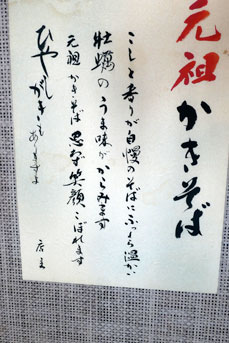 元祖かきそば
こしと香りが自慢のそばにふっくら温かい
牡蠣のうま味がからみます
元祖かきそば 思わず笑顔こぼれます
ひやしがきそば
あります
店主